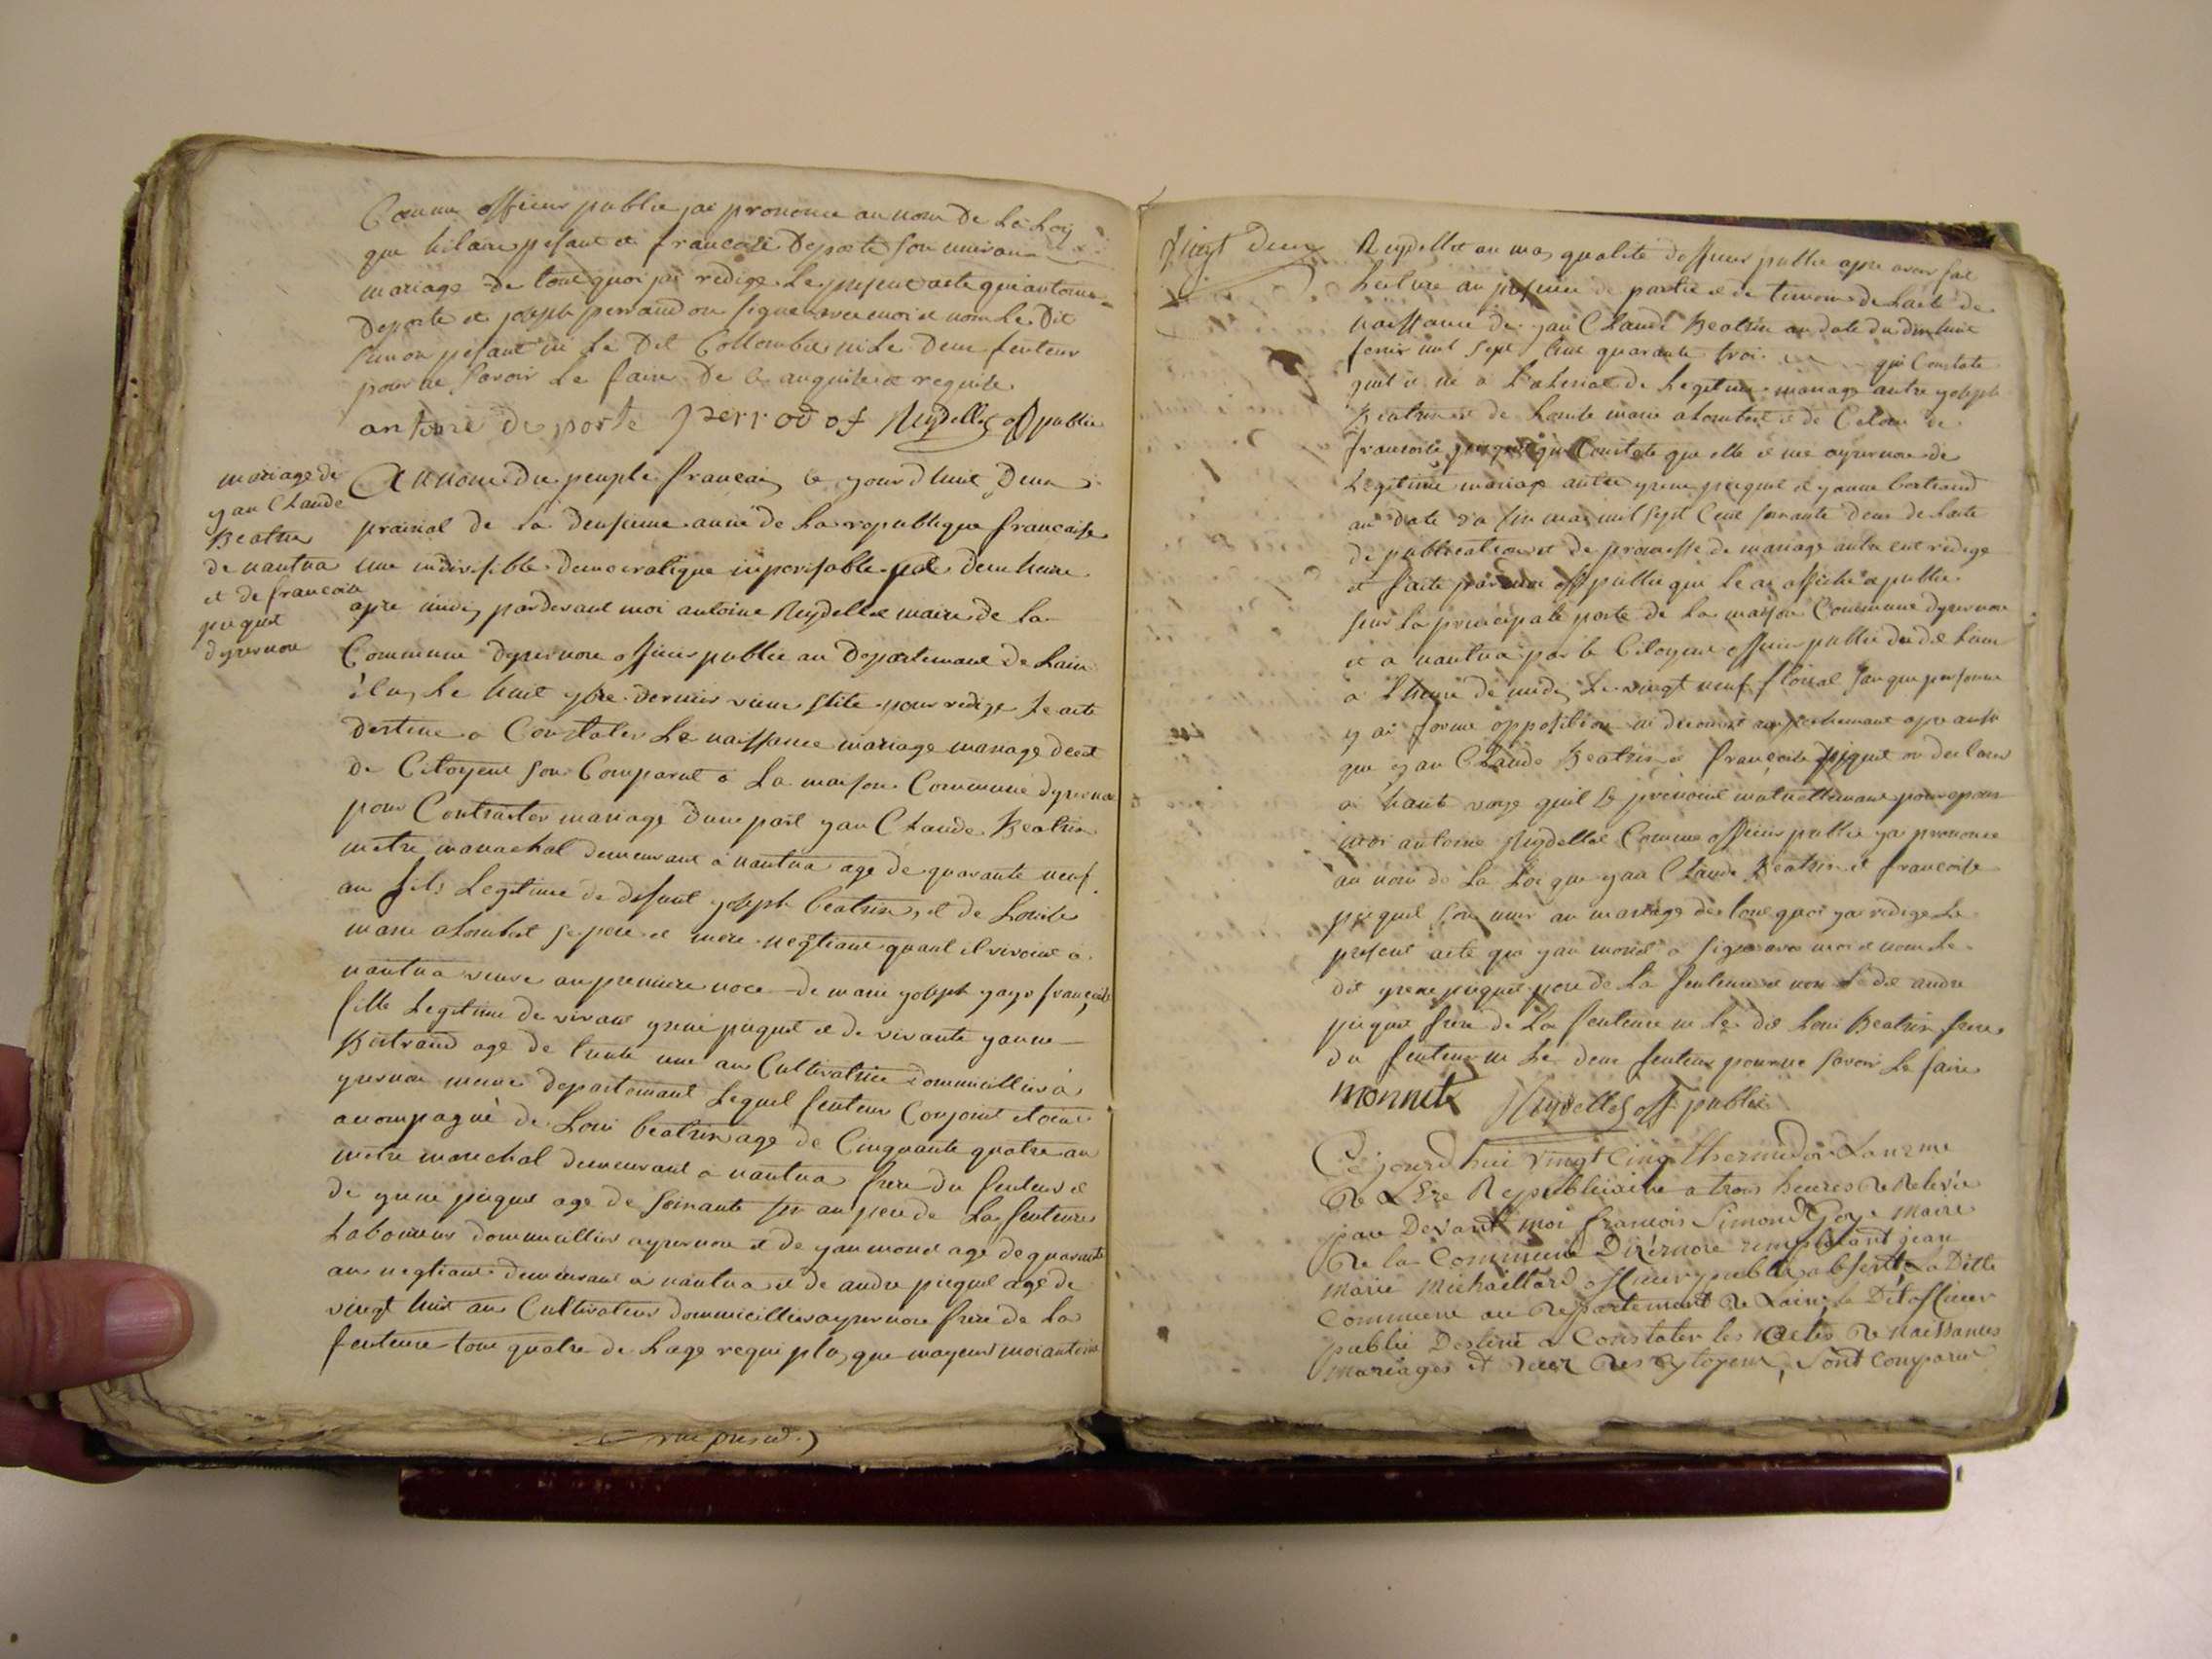 Comme officier public jai prononcé au nom de La Loy
que hilaire pesant et francoise Deporte son unis au
mariage de tout quoi jai redigé Le present acte que antoine
Deporte et joseph perraud on signé avec moi et non Le Dit
simon pesant ni Le Dit Collombet ni Le Deux
pour ne savoir Le faire de ce anquis et requis
antoine de porte perrod of Reydellet of public
mariage de
yan Claude
Beatrix
de nantua
et de francoise
piquet
dyzernore
Au nom du peuple francais ce jourdhuit Deux
prairial de la deusieme année de La republique francaise
une indivisible democratique imperisable deux heure
apre midi pardevant moi antoine Reydellet maire de la
Commune dyzernore officier public au Departemant de Lain
élu Le huit xbre dernier vieux stile pour redige Le acte
destine a Constater Le naissance mariage mariage deces
de Citoyens son Comparut a La maison Commune dyzernore
pour Contracter mariage dune part yan Claude Beatrix
metre marechal demeurant a nantua age de quarante neuf
an fils Legitime de defunt yoseph beatrix et de Louise
marie alombert se pere et mere negtiant quant il vivoient a
nantua veuve an premiere noce de marie yoseph francoise
fille Legitime de vivant yrene piquet et de vivante yanne
Bertrand age de trente une an Cultivatrice dommicillier à
yzernore meme departemant Lequel futeur Conjoint etoient
acompagné de Loui beatrix age de Cinquante quatre an
metre marechal demeurant a nantua frere du futeur et
de yrene piquet age de soixante six an pere de La futeure
Laboureur dommicillier ayzernore et de yan monet age de quarante
an negtiant demeurant a nantua et de andre piquet agé de
vingt huit an Cultivateur dommicillier ayzernore frere de La
feuteure tout quatre de Lage requi plus que mageur moi antoine
vingt deux
Reydellet an ma qualité dofficier public apre avoir fait
Lecture an presence de partie et de temoin de Lacte de
naissance de yan Claude Beatrix an date du dix huit
fevrier mil sept Cent quarante trois qui Constate
quil et né a de Legitime mariage antre yoseph
Beatrix et de Louise marie alombert et de Celui de
francoise piquet qui Constate que elle et née ayzernore de
Legitime mariage antre yrene piquet et yanne bertrand
an date du six mai mil sept Cent soixante deux de Lacte
de publication et de promesse de mariage antre eux redigé
et faite par moi off public qui Le ai affiché a public
sur La principale porte de La maison Commune dyzernore
et a nantua par le Citoyen officier public du dit Lieu
a Lheure de midi Le vingt neuf floreal san que personne
y ai formé opposition ni decouvert anpechemant apre ausi
que yan Claude Beatrix et francoise piquet on declaré
a haute voye quil se prenoient mutuellemant pour epoux
moi antoine Reydellet Comme officier public ya prononcé
au nom de La Loi que yan Claude Beatrix et francoise
piquet son uni an mariage de tout quoi ya redigé Le
present acte que yan monet a signé avec moi et non Le
dit yrene piquet pere de La feuteure et non Le dit andre
piquet frere de La feuteure ni Le dit Loui Beatrix frere
du feuteur ni Le deux feuteur pour ne savoir Le faire
monnet Reydellet off public
Cejourd'hui vingt Cinq thermidor Lan 2me
de Lére Républicaine a trois heures de relevée
par Devant moi francois Simond Goy maire
de la Commune Dizérnore remplacant jean
Marie Michaillard officier public absent La Ditte
Commune au département de Lain, le Dit officier
public Destiné a Constater les actes de naissances
mariages et deces des cytoyens, sont comparu